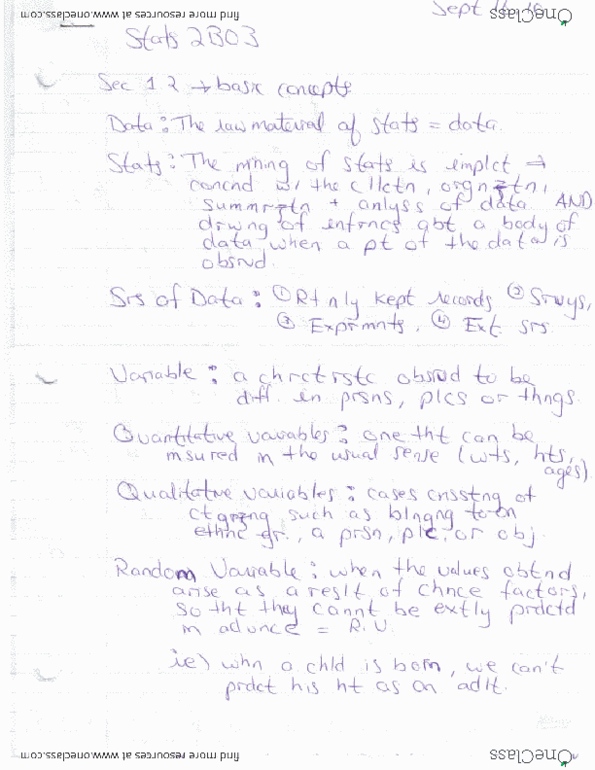 find more resources at www.oneclass.com
OneClass
Sept
Stats 2B03
Sec 1 2 → basic concepts
Data : The raw material of stats = data.
Stats : The mning of stats is implct →
concnd w/ the cllctn, orgnztn,
summrztn + anlyss of data AND
drwng of infrncs abt a body of
data when a pt of the data is
obsrvd.
Srs of Data : ① Rtnly kept records ② Srvys,
③ Exprmnts, ④ Ext srs.
Variable : a chrctrstc obsrvd to be
diff. in prsns, plcs or thngs.
Quantitative variables : one tht can be
msured in the usual sense (wts, hts,
ages)
Qualitative variables : cases cnsstng of
ctgrzng such as blngng to an
ethnc gr., a prsn, plc, or obj.
Random Variable : when the values obtnd
arise as a reslt of chnce factors,
so tht they cannt be extly prdctd
in advnce = R.V.
ie) whn a chld is born, we can't
prdct his ht as an adlt.
find more resources at www.oneclass.com
OneClass